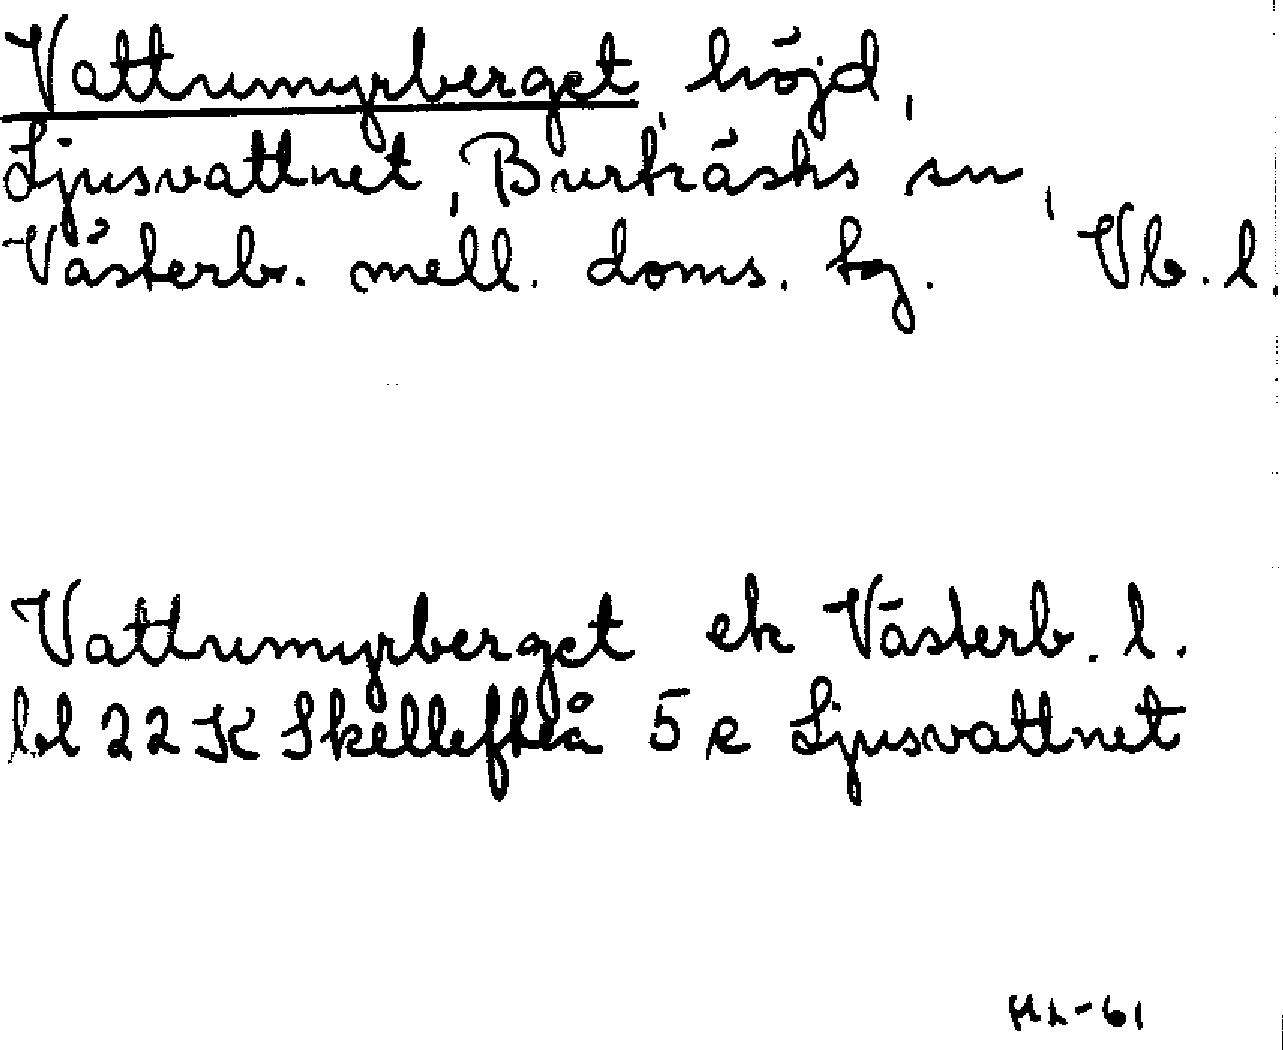 Vattumyrberget, höjd,
Ljusvattnet, Burträsks sn,
Västerb. mell. doms. tg. Vb. l.
Vattumyrberget ek Västerb. l.
bl 22 K Skellefteå 5 e Ljusvattnet